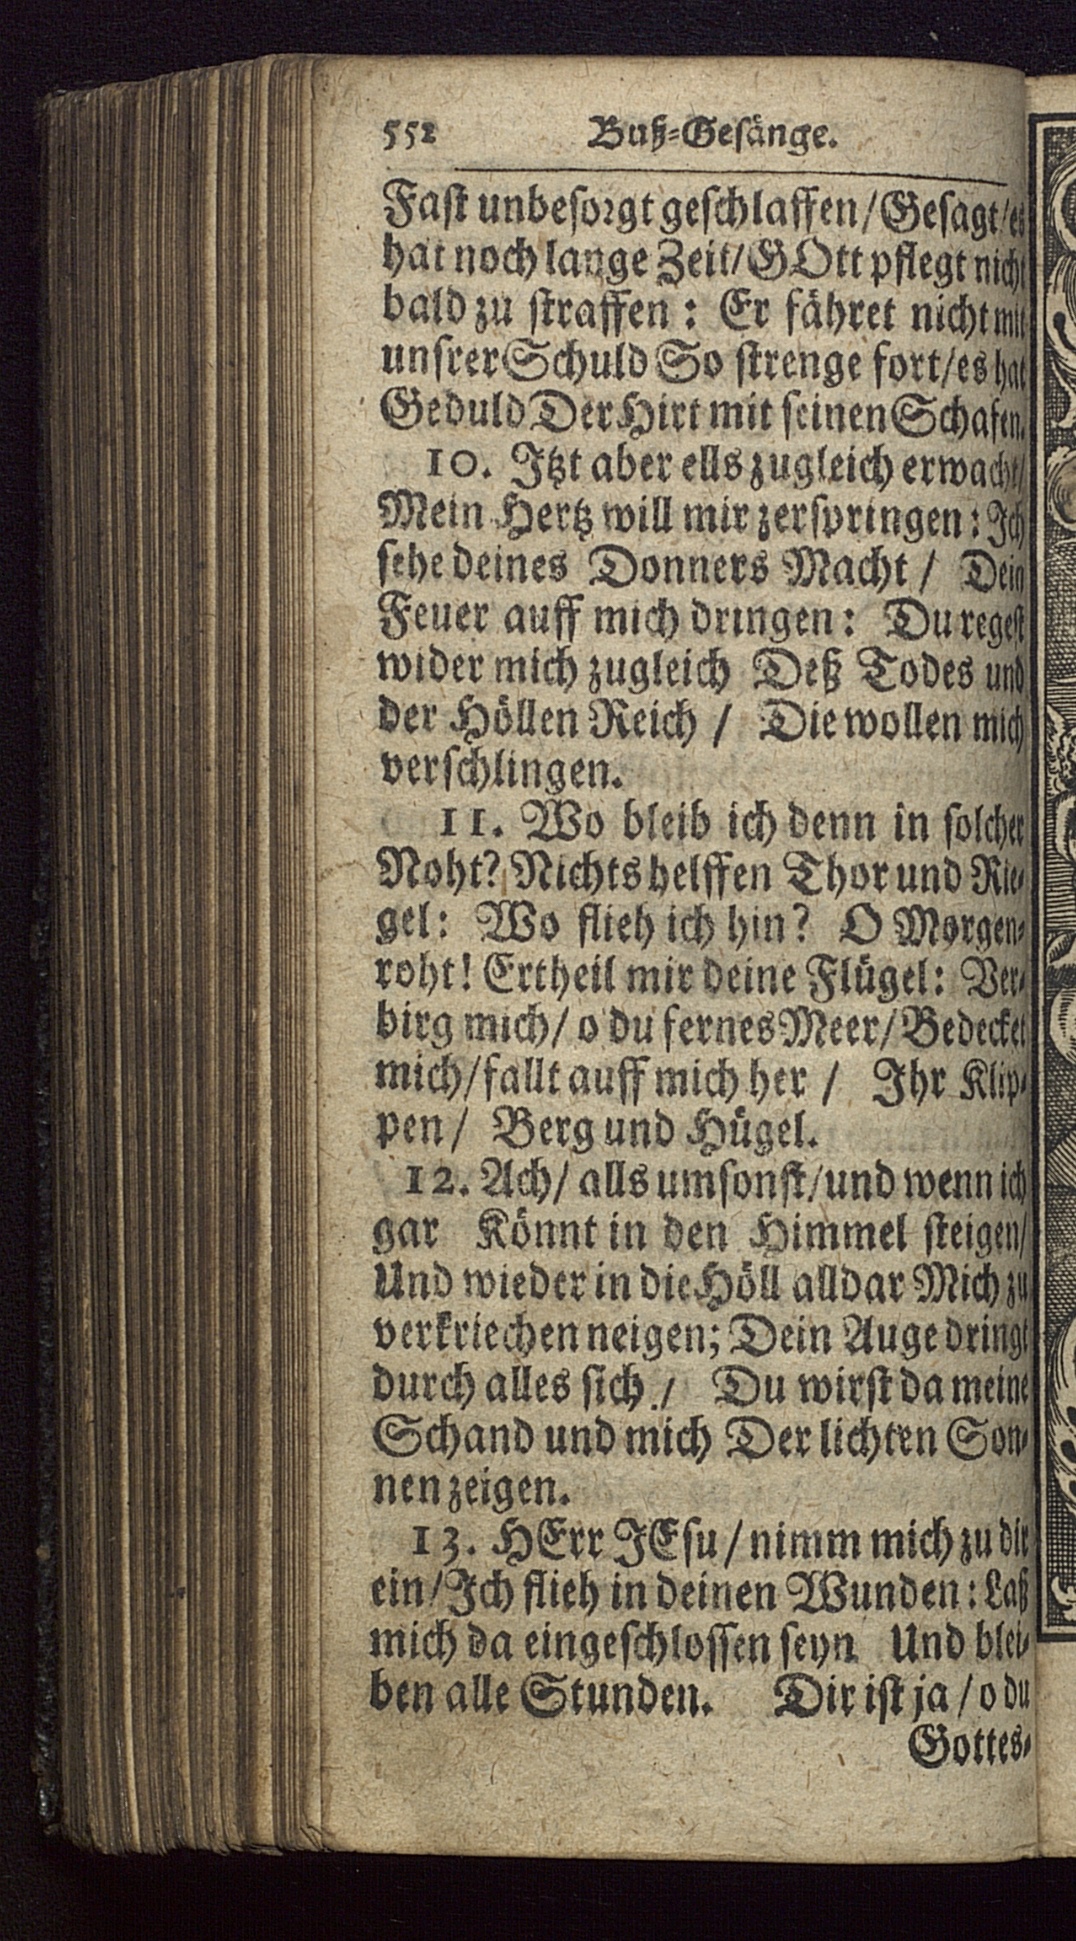 552 Buß-Gesänge.
Fast unbesorgt geschlaffen/Gesagt/es
hat noch lange Zeit/GOtt pflegt nicht
bald zu straffen: Er fähret nicht mit
unsrer Schuld So strenge fort/es hat
Geduld Der Hirt mit seinen Schafen.
10. Itzt aber ells zugleich erwacht/
Mein Hertz will mir zerspringen: Ich
sehe deines Donners Macht / Dein
Feuer auff mich dringen: Du regest
wider mich zugleich Deß Todes und
der Höllen Reich / Die wollen mich
verschlingen.
11. Wo bleib ich denn in solcher
Noht? Nichts helffen Thor und Rie-
gel: Wo flieh ich hin? O Morgen-
roht! Ertheil mir deine Flügel: Ver-
birg mich/ o du fernes Meer/Bedecket
mich/fallt auff mich her / Ihr Klip-
pen/ Berg und Hügel.
12. Ach/ alls umsonst/und wenn ich
gar Könnt in den Himmel steigen/
Und wieder in die Höll alldar Mich zu
verkriechen neigen; Dein Auge dringt
durch alles sich / Du wirst da meine
Schand und mich Der lichten Son-
nen zeigen.
13. HErr JEsu/nimm mich zu dir
ein/Ich flieh in deinen Wunden: Laß
mich da eingeschlossen seyn Und blei-
ben alle Stunden. Dir ist ja/o du
Gottes-